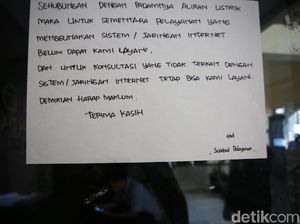 SEHUBUNGAN DENGAN PADAMNYA ALIRAN LISTRIK
MAKA UNTUK SEMENTARA PELAYANAN YANG
MENGGUNAKAN SISTEM / JARINGAN INTERNET
BELUM DAPAT KAMI LAYANI.
DAN UNTUK KONSULTASI YANG TIDAK TERKAIT DENGAN
SISTEM / JARINGAN INTERNET TETAP BISA KAMI LAYANI.
DEMIKIAN HARAP MAKLUM.
TERIMA KASIH
detikcom